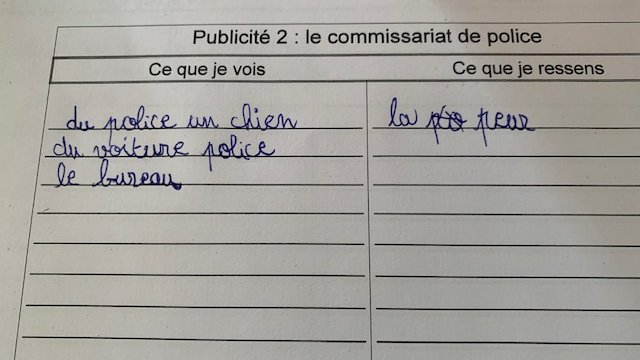 Publicité 2 : le commissariat de police
Ce que je vois
Ce que je ressens
du police un chien
du voiture police
le bureau
la peur